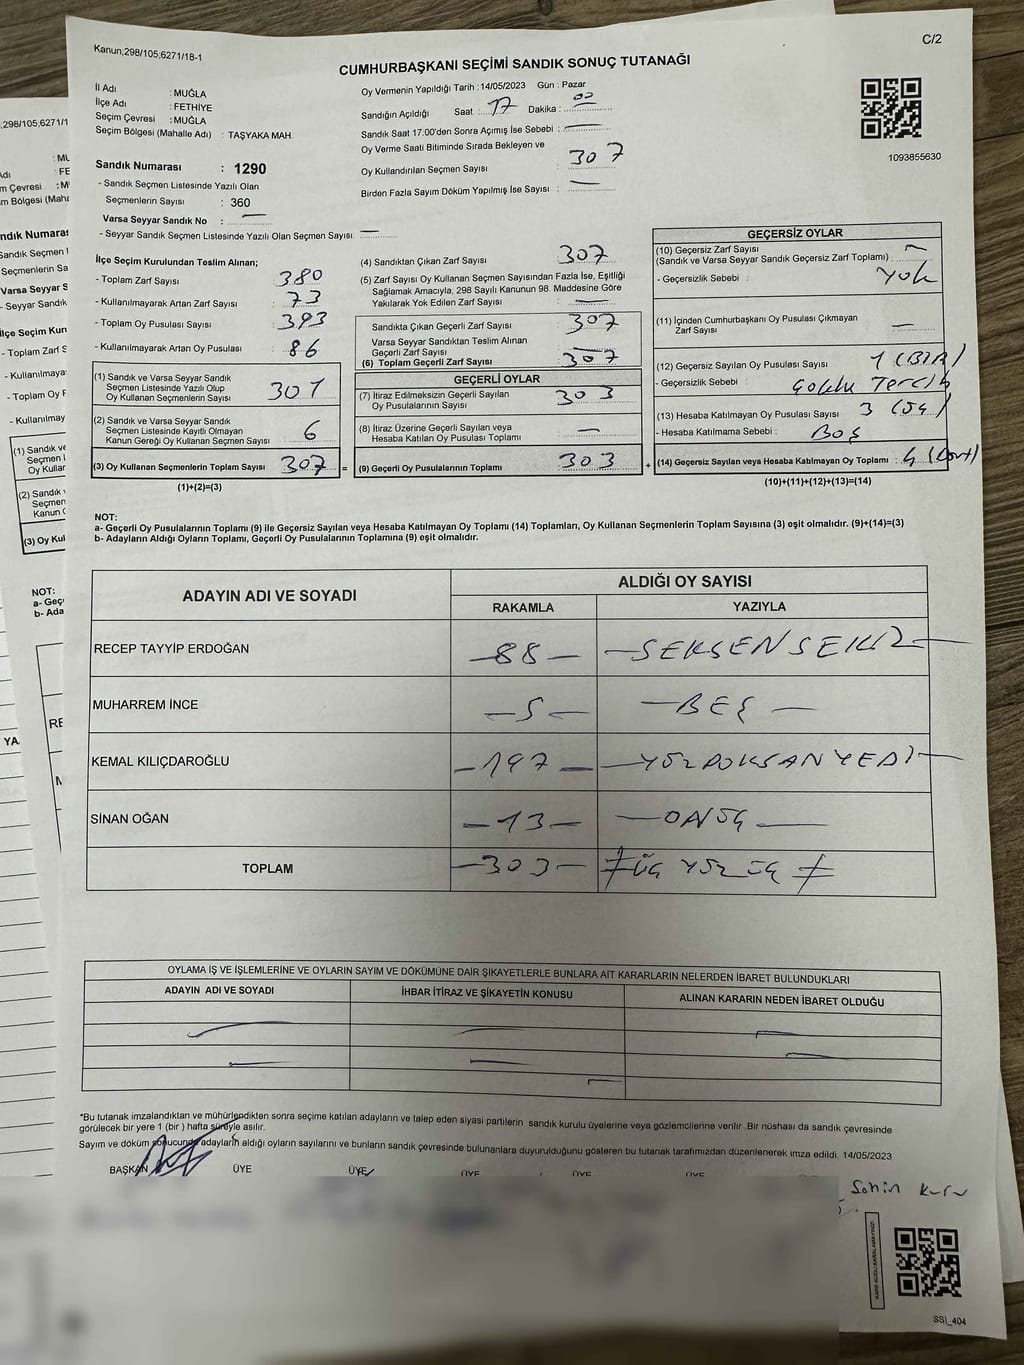 Kanun;298/105;6271/18-1
C/2
CUMHURBAŞKANI SEÇİMİ SANDIK SONUÇ TUTANAĞI
İl Adı : MUĞLA
İlçe Adı : FETHİYE
Seçim Çevresi : MUĞLA
Seçim Bölgesi (Mahalle Adı) : TAŞYAKA MAH.
Sandık Numarası : 1290
- Sandık Seçmen Listesinde Yazılı Olan
Seçmenlerin Sayısı : 360
Varsa Seyyar Sandık No : —
- Seyyar Sandık Seçmen Listesinde Yazılı Olan Seçmen Sayısı: —
Oy Vermenin Yapıldığı Tarih : 14/05/2023 Gün : Pazar
Sandığın Açıldığı Saat : 17 Dakika : 00
Sandık Saat 17:00'den Sonra Açımış İse Sebebi : —
Oy Verme Saati Bitiminde Sırada Bekleyen ve
Oy Kullandırılan Seçmen Sayısı : 307
Birden Fazla Sayım Döküm Yapılmış İse Sayısı : —
1093855630
İlçe Seçim Kurulundan Teslim Alınan;
- Toplam Zarf Sayısı : 380
- Kullanılmayarak Artan Zarf Sayısı : 73
- Toplam Oy Pusulası Sayısı : 393
- Kullanılmayarak Artan Oy Pusulası : 86
(1) Sandık ve Varsa Seyyar Sandık
Seçmen Listesinde Yazılı Olup
Oy Kullanan Seçmenlerin Sayısı : 301
(2) Sandık ve Varsa Seyyar Sandık
Seçmen Listesinde Kayıtlı Olmayan
Kanun Gereği Oy Kullanan Seçmen Sayısı : 6
(3) Oy Kullanan Seçmenlerin Toplam Sayısı : 307 =
(1)+(2)=(3)
(4) Sandıktan Çıkan Zarf Sayısı : 307
(5) Zarf Sayısı Oy Kullanan Seçmen Sayısından Fazla İse, Eşitliği
Sağlamak Amacıyla, 298 Sayılı Kanunun 98. Maddesine Göre
Yakılarak Yok Edilen Zarf Sayısı : —
Sandıkta Çıkan Geçerli Zarf Sayısı : 307
Varsa Seyyar Sandıktan Teslim Alınan
Geçerli Zarf Sayısı : —
(6) Toplam Geçerli Zarf Sayısı : 307
GEÇERLİ OYLAR
(7) İtiraz Edilmeksizin Geçerli Sayılan
Oy Pusulalarının Sayısı : 303
(8) İtiraz Üzerine Geçerli Sayılan veya
Hesaba Katılan Oy Pusulası Toplamı : —
(9) Geçerli Oy Pusulalarının Toplamı : 303 +
GEÇERSİZ OYLAR
(10) Geçersiz Zarf Sayısı
(Sandık ve Varsa Seyyar Sandık Geçersiz Zarf Toplamı) : —
- Geçersizlik Sebebi : Yok
(11) İçinden Cumhurbaşkanı Oy Pusulası Çıkmayan
Zarf Sayısı : —
(12) Geçersiz Sayılan Oy Pusulası Sayısı : 1 (BİR)
- Geçersizlik Sebebi : Çoklu Tercih
(13) Hesaba Katılmayan Oy Pusulası Sayısı 3 (Üç)
- Hesaba Katılmama Sebebi : Boş
(14) Geçersiz Sayılan veya Hesaba Katılmayan Oy Toplamı : 4 (Dört)
(10)+(11)+(12)+(13)=(14)
NOT:
a- Geçerli Oy Pusulalarının Toplamı (9) ile Geçersiz Sayılan veya Hesaba Katılmayan Oy Toplamı (14) Toplamları, Oy Kullanan Seçmenlerin Toplam Sayısına (3) eşit olmalıdır. (9)+(14)=(3)
b- Adayların Aldığı Oyların Toplamı, Geçerli Oy Pusulalarının Toplamına (9) eşit olmalıdır.
ADAYIN ADI VE SOYADI
ALDIĞI OY SAYISI
RAKAMLA YAZIYLA
RECEP TAYYİP ERDOĞAN —88— —SEKSENSEKİZ—
MUHARREM İNCE —5— —BEŞ—
KEMAL KILIÇDAROĞLU —197— —YÜZDOKSANYEDİ—
SİNAN OĞAN —13— —ONÜÇ—
TOPLAM —303— ≠ ÜÇ YÜZ ÜÇ ≠
OYLAMA İŞ VE İŞLEMLERİNE VE OYLARIN SAYIM VE DÖKÜMÜNE DAİR ŞİKAYETLERLE BUNLARA AİT KARARLARIN NELERDEN İBARET BULUNDUKLARI
ADAYIN ADI VE SOYADI İHBAR İTİRAZ VE ŞİKAYETİN KONUSU ALINAN KARARIN NEDEN İBARET OLDUĞU
*Bu tutanak imzalandıktan ve mühürlendikten sonra seçime katılan adayların ve talep eden siyasi partilerin sandık kurulu üyelerine veya gözlemcilerine verilir .Bir nüshası da sandık çevresinde
görülecek bir yere 1 (bir ) hafta süreyle asılır.
Sayım ve döküm sonucunda adayların aldığı oyların sayılarını ve bunların sandık çevresinde bulunanlara duyurulduğunu gösteren bu tutanak tarafımızdan düzenlenerek imza edildi. 14/05/2023
BAŞKAN ÜYE ÜYE ÜYE ÜYE ÜYE
SSİ_404